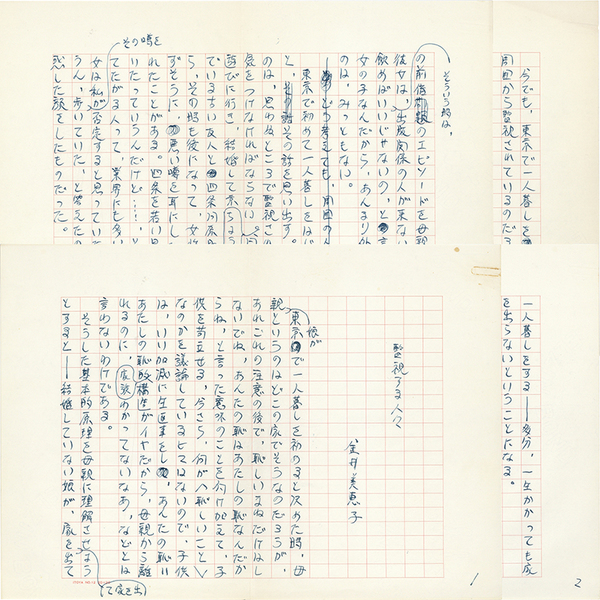 監視する人々
金井美恵子
娘が
東京で一人暮しを初めると決めた時、母
親というのはどこの家でもそうなのだろうが、
あれこれの注意の後で、恥しいまねだけはし
ないでね、あんたの恥はあたしの恥なんだか
らね、と言った意味のことを付け加えて、子
供を苛立せる。今さら、何が〈恥しいこと〉
なのかを議論しているヒマはないので、子供
は、いい加減に生返事をし、あんたの恥
あたしの恥的構造がイヤだから、母親から離
れるのに、わかってないなあ、などとは
言わないわけである。
そうした基本的原理を母親に理解させよう
とすると——結婚していない娘が、家を出て
(て家を出)
1
一人暮しをする——多分、一生かかっても
ないということになる。
2
そういう
の前借のエピソードを母親
彼女は、出版関係の人が来ない
飲めばいいじゃないの、と言
女の子なんだから、あんまり外
のは、みっともない。
どう考えても、周囲の人
東京で初めて一人暮しをはじ
と、その話を思い出す。
のは、思わぬところで監視さ
気をつけなければならない
遊びに行き、結婚して
でいる古い友人と四条河原
ら、その後になって、女
ずそうに、悪い噂を耳にし
れたことがある。四条を若い男
いたっていうんだけど…、と
その噂を
てたがる人って、業界にも多い
女は私が否定すると思ってい
うん、歩いていた、と答えた
惑した顔をしたものだった。
今でも、東京で一人暮しを
周囲から監視されているのだろ